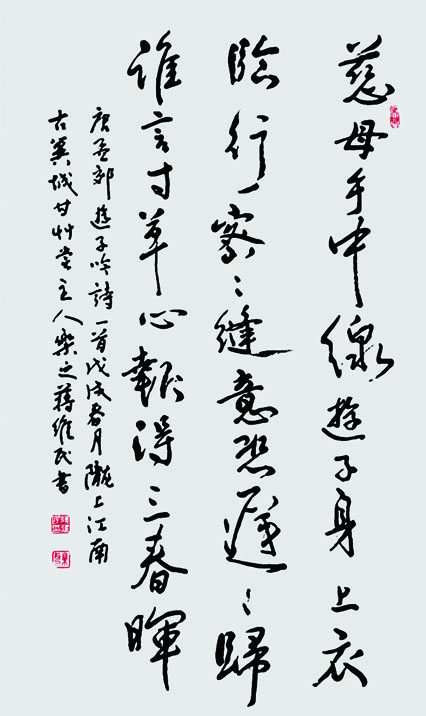 慈母手中線遊子身上衣
臨行一密〻縫意恐遲〻歸
誰言寸草心報得三春暉
唐孟郊遊子吟詩一首戊戌春月隴上江南
古冀城甘艸堂主人樂之蔣維民書